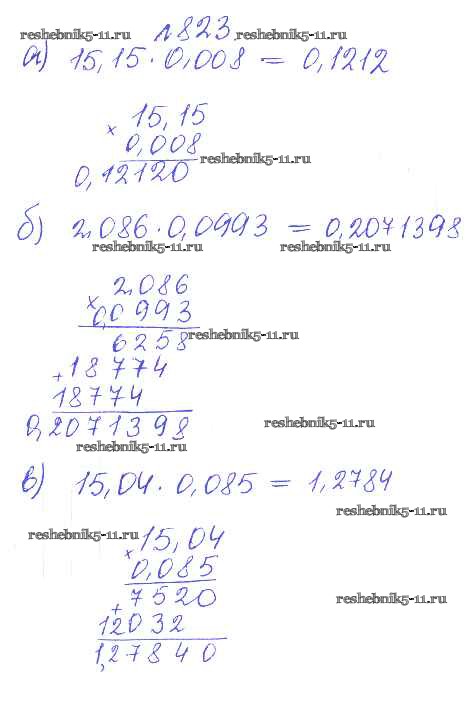 №823
reshebnik5-11.ru reshebnik5-11.ru
а) 15,15 · 0,008 = 0,1212
× 15,15
0,008
reshebnik5-11.ru
0,12120
б) 2,086 · 0,0993 = 0,2071398
reshebnik5-11.ru reshebnik5-11.ru
2,086
× 0,0993
6258
reshebnik5-11.ru
+ 18774
18774
reshebnik5-11.ru
0,2071398
reshebnik5-11.ru
в) 15,04 · 0,085 = 1,2784
reshebnik5-11.ru
reshebnik5-11.ru
× 15,04
0,085
+ 7520
reshebnik5-11.ru
12032
1,27840